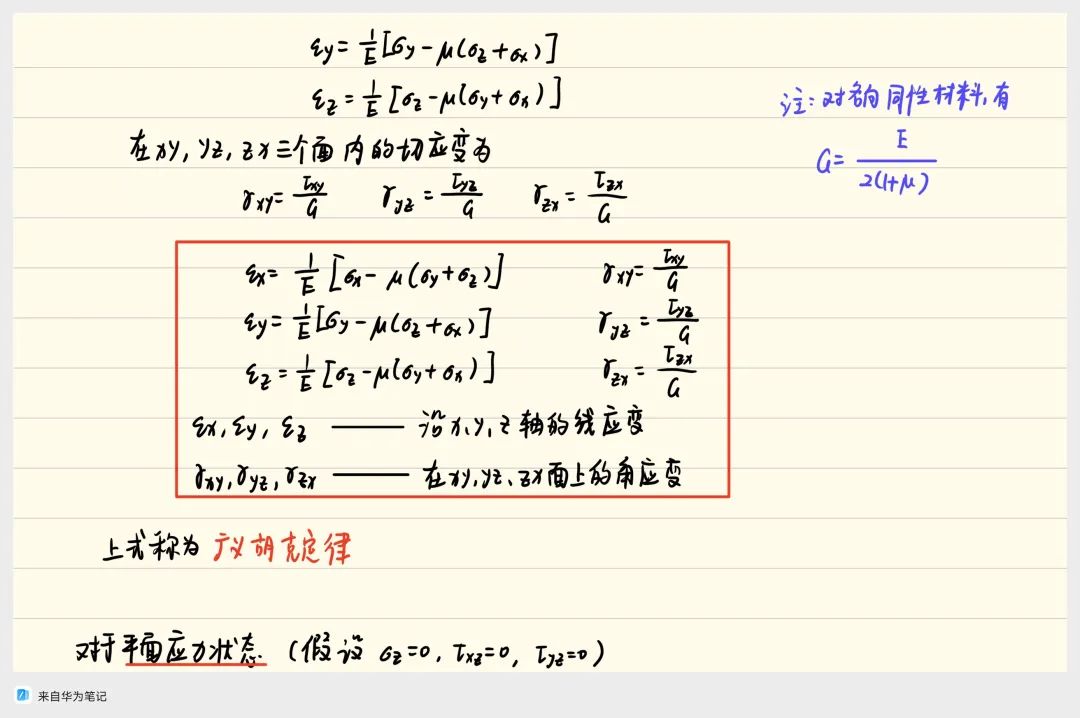 εy = 1/E [σy − μ(σz + σx)]
εz = 1/E [σz − μ(σy + σx)]
注:对各向同性材料,有
G = E / 2(1+μ)
在xy, yz, zx三个面内的切应变为
γxy = τxy/G γyz = τyz/G γzx = τzx/G
εx = 1/E [σx − μ(σy + σz)] γxy = τxy/G
εy = 1/E [σy − μ(σz + σx)] γyz = τyz/G
εz = 1/E [σz − μ(σy + σx)] γzx = τzx/G
εx, εy, εz —— 沿x、y、z轴的线应变
γxy, γyz, γzx —— 在xy、yz、zx面上的角应变
上式称为 广义胡克定律
对于平面应力状态 (假设 σz=0, τxz=0, τyz=0)
来自华为笔记